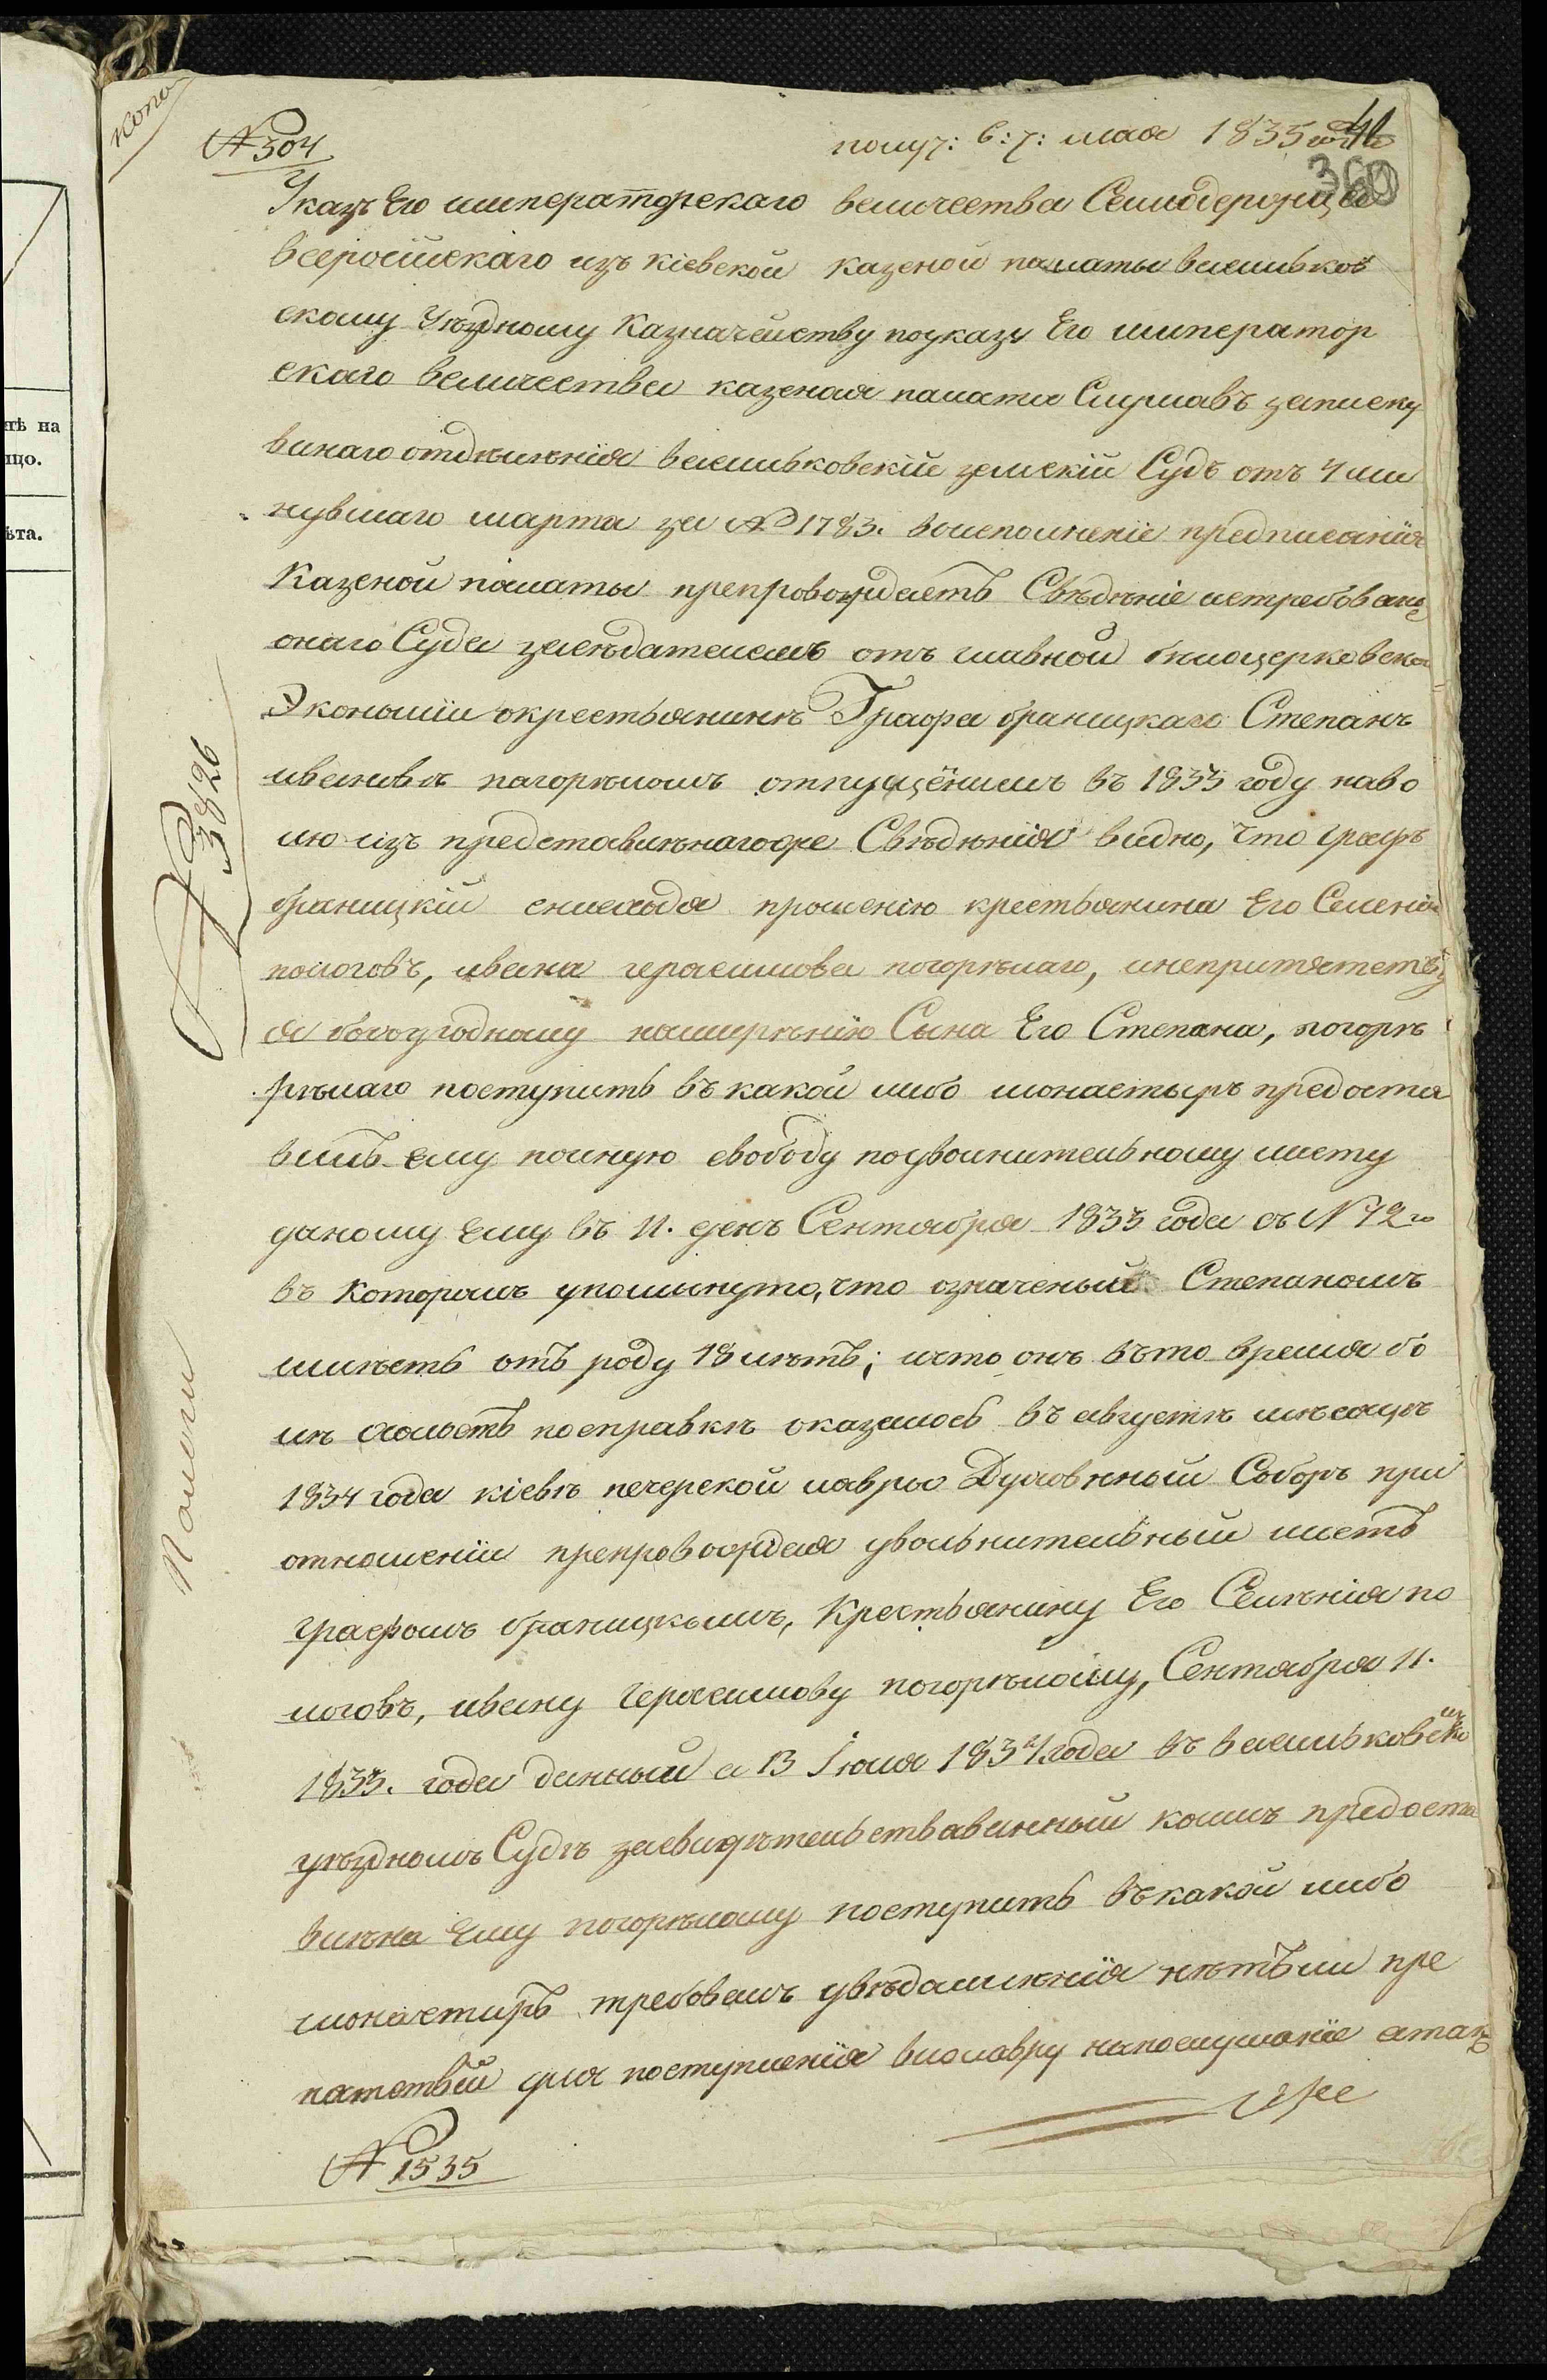 копа
№ 304
получ: в: 7: мая 1835 года
41
360
Указъ Его императорскаго величества Самодержца
всеросійскаго изъ кіевской казеной палаты васильков
скому Уѣздному Казначейству поуказу Его император
скаго величества казеная палата Слушавъ записку
винаго отдѣленія васильковскій земскій Судъ отъ 4 ми
нувшаго марта за № 1783. воисполненіе предписанія
Казеной палаты препровождаетъ Свѣдѣніе истребован
онаго Суда засѣдателемъ отъ главной бѣлоцерковско
Экономіи окрестьянинѣ Графа браницкаго Степанѣ
ивановѣ погорѣломъ отпущёнимъ въ 1833 году наво
лю изъ представлѣнагоже Свѣдѣнія видно, что графъ
браницкій снисходя прошенію крестьянина Его Селенія
пологовъ, ивана герасимова погорѣлаго, инепритятству
я богоугодному намѣрѣнію Сына Его Степана, погорѣ
рѣлаго поступить въ какой либо монастырь предоста
вилъ ему полную свободу поувольнительному листу
даному Ему въ 11. день Сентября 1833 года съ № 72го
въ Которомъ упомянуто, что означеный Степаномъ
имѣетъ отъ роду 18 лѣтъ; ичто онъ въто время бо
лѣ холостъ посправкѣ оказалось въ августѣ мѣсяцѣ
1834 года кіевѣ печерской лавры Духовнный Соборъ при
отношеніи препровождая увольнительный листъ
графомъ браницкимъ, Крестьянину Его Селѣнія по
логовъ, ивану Герасимову погорѣлому, Сентября 11.
1833. года данный а 13 Іюля 1834 года въ васильковском
уѣздномъ Судѣ засвидѣтельствавинный коимъ предоста
влѣна Ему погорѣлому поступить въкакой либо
монастирь требовалъ увѣдамлѣнія нѣтъли пре
пятствій для поступленія вholавру напослушаніе атакъ
же
№ 1535
№ 3826
Пологи